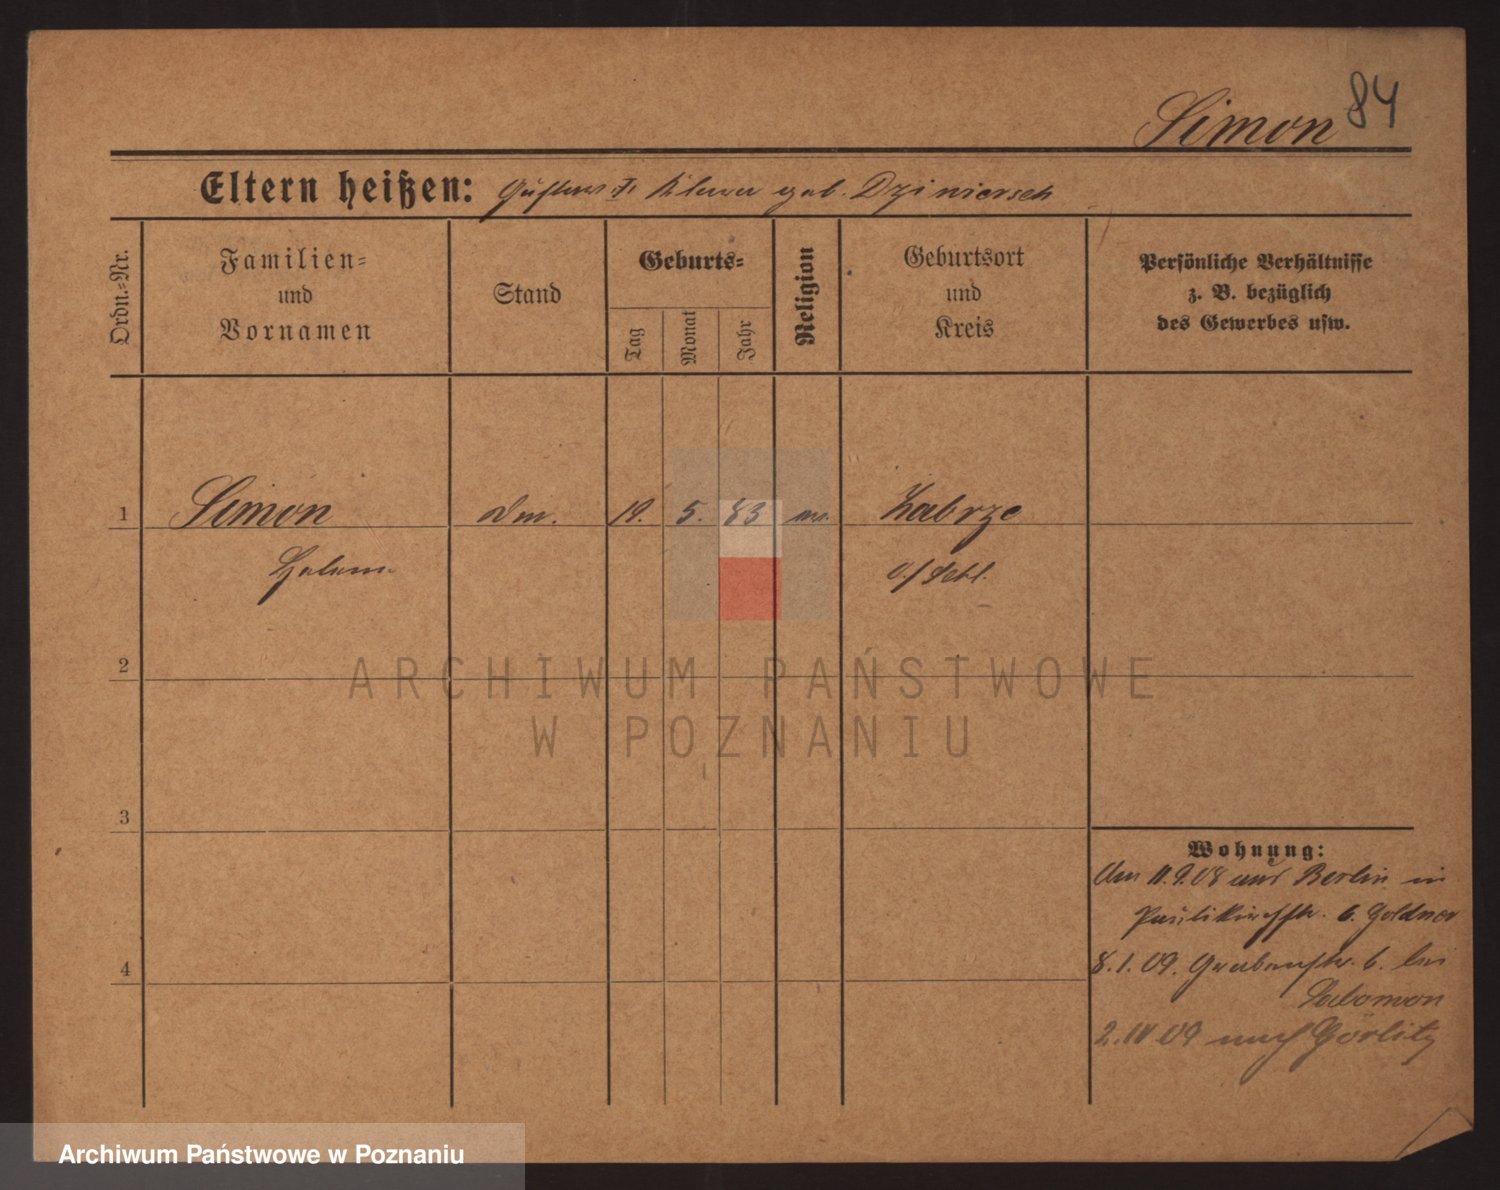 Simon 84
Eltern heißen: Gustav geb. Dziniersch
Ordn.-Nr.
Familien-
und
Vornamen
Stand
Geburts-
Tag
Monat
Jahr
Religion
Geburtsort
und
Kreis
Persönliche Verhältnisse
z. B. bezüglich
des Gewerbes usw.
1 Simon 19. 5. 83 Zabrze
O/Schl.
2
3
4
Wohnung:
11.9.08 aus Berlin in
Paulikirchstr. 6. Goldner
8.1.09. Grabenstr. 6. bei
Salomon
2. 09 nach Görlitz
ARCHIWUM PAŃSTWOWE
W POZNANIU
Archiwum Państwowe w Poznaniu